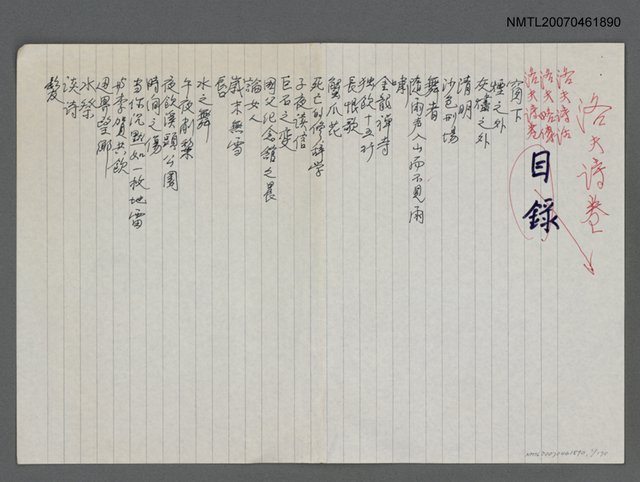 NMTL20070461890
洛夫詩卷
洛夫詩話
洛夫詩卷
目錄
窗下
煙之外
灰燼之外
清明
沙包刑場
舞者
隨雨聲入山而不見雨
嘯
金龍禪寺
獨飲十五行
長恨歌
蟹爪花
死亡的修辭學
子夜讀信
巨石之變
國父紀念館之晨
論女人
歲末無雪
水之舞
午夜削梨
夜飲溪頭公園
時間之傷
當你沉默如一枚地雷
與李賀共飲
邊界望鄉
水祭
談詩
髮
NMTL20070461890, 1/190